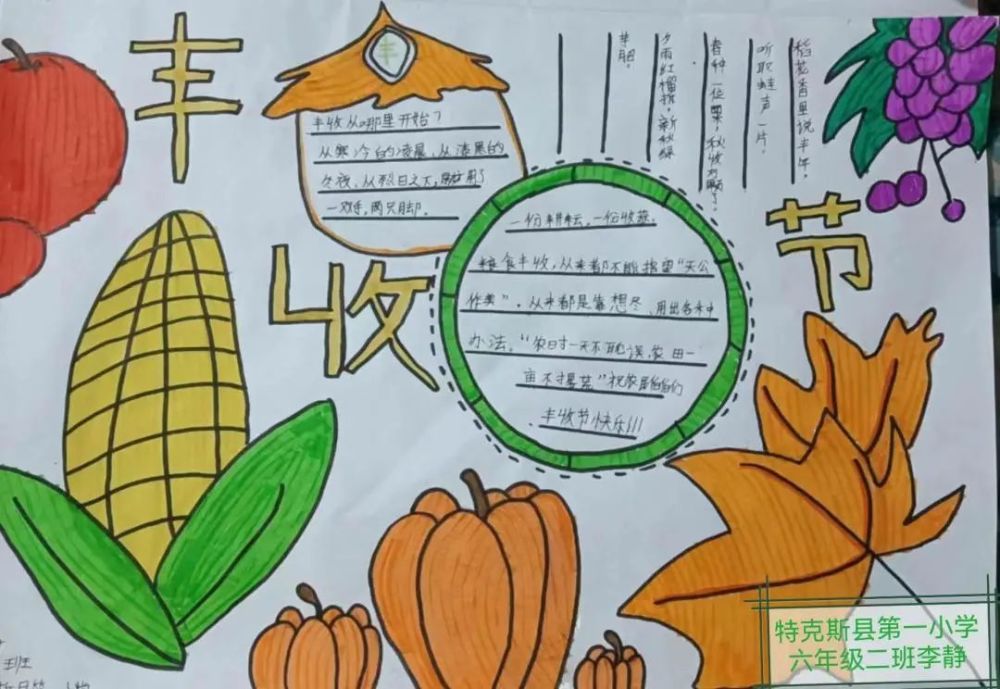 丰
收
节
丰
丰收从哪里开始？
从寒冷的凌晨、从漆黑的
冬夜、从烈日之下，
一双手，两只脚.
稻花香里说丰年，
听取蛙声一片。
春种一位粟，秋收万颗子。
夕雨红榴拆，新秋绿
芋肥。
一份耕耘，一份收获.
粮食丰收，从来都不能指望“天公
作美”，从来都是靠想尽、用出各禾中
办法，“农时一天不耽误，农田一
亩不撂荒”祝农民伯伯们
丰收节快乐!!!
班
特克斯县第一小学
六年级二班李静